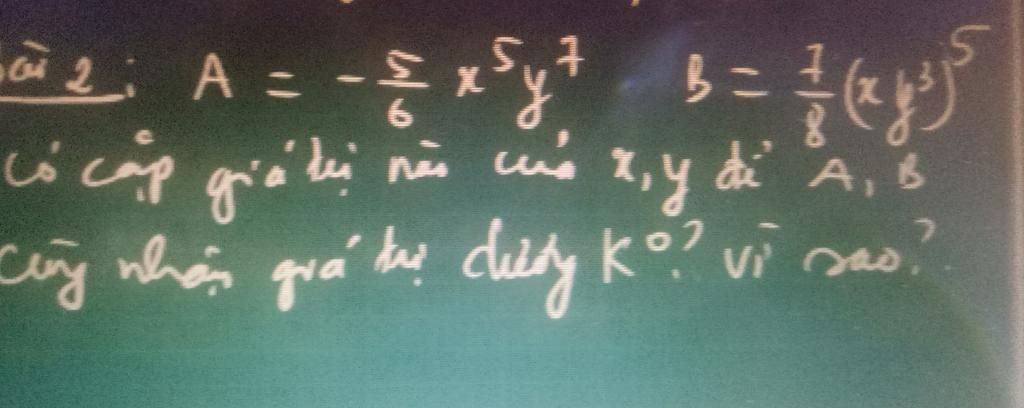 bài 2: A = -5/6 x⁵y⁷ B = 7/8 (x y³)⁵
có cặp giá trị nào của x, y để A, B
cùng nhận giá trị dương K⁰? vì sao?